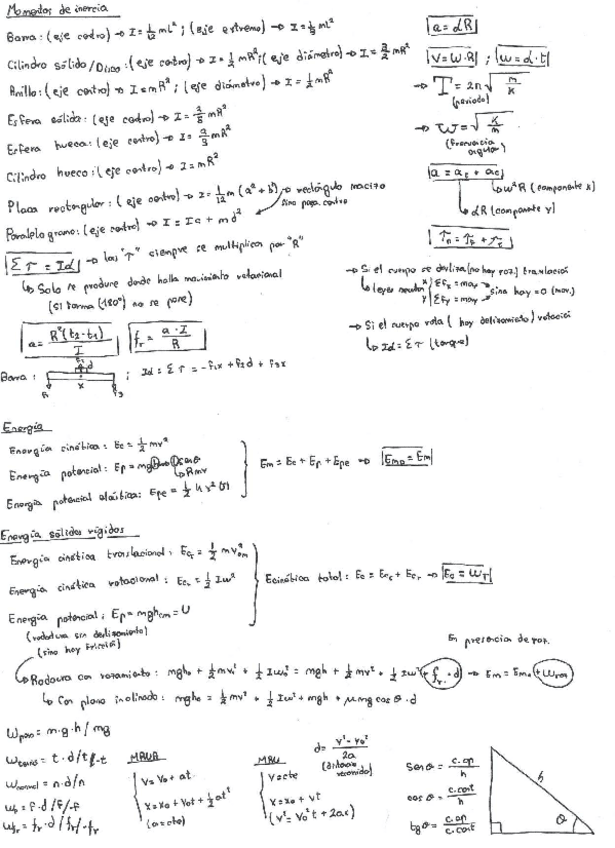 Momentos de inercia
Barra: (eje centro) → I = 1/12 mL²; (eje extremo) → I = 1/3 mL²
Cilindro sólido/Disco: (eje centro) → I = 1/2 mR²; (eje diámetro) → I = 3/2 mR²
Anillo: (eje centro) → I = mR²; (eje diámetro) → I = 1/2 mR²
Esfera sólida: (eje centro) → I = 2/5 mR²
Esfera hueca: (eje centro) → I = 2/3 mR²
Cilindro hueco: (eje centro) → I = mR²
Placa rectangular: (eje centro) → I = 1/12 m (a² + b²) → rectángulo macizo
Paralelogramo: (eje centro) → I = Ic + md²
Sino pasa centro
Στ = Iα → las "τ" siempre se multiplica por "R"
↳ Solo se produce donde halla movimiento rotacional
(Si forma (180°) no se pone)
a = R²(t₂-t₁) / I
fr = a · I / R
Barra: F₁ d x F₃ ; Iα = Στ = -F₁x + F₂d + F₃x
a = αR
V = W·R ; ω = α·t
→ T = 2π √(m/K)
(periodo)
→ ω = √(K/m)
(frecuencia angular)
a = at + ac
↳ ω²R (componente x)
↳ αR (componente y)
→ Si el cuerpo se desliza (no hay roz.) traslación
↳ leyes newton x ΣFx = max
y ΣFy = may
sino hay = 0 (mov.)
→ Si el cuerpo rota (hay deslizamiento) rotación
↳ Iα = Στ (torque)
Energía
Energía cinética: Ec = 1/2 mv²
Energía potencial: Ep = mgh
Energía potencial elástica: Epe = 1/2 k
Em = Ec + Ep + Epe → Emo = Em
Energía sólidos rígidos
Energía cinética translacional: Ect = 1/2 mv²cm
Energía cinética rotacional: Ecr = 1/2 Iω²
Energía potencial: Ep = mghcm = U
Ecinética total: Ec = Ect + Ecr → Ec = WT
(rodadura sin deslizamiento)
(sino hay fricción)
En presencia de roz.
↳ Rodadura con rozamiento: mgh₀ + 1/2 mv₀² + 1/2 Iω₀² = mgh + 1/2 mv² + 1/2 Iω² + fr · d → Em = Emo + Wroz
↳ Con plano inclinado: mgh₀ = 1/2 mv² + 1/2 Iω² + mgh + μmg cos θ · d
Wpeso = m·g·h / mg
= t·d / t
Wnormal = n·d / n
Wf = F·d / F / -F
Wfr = fr·d / fr / -fr
MRUA
V = V₀ + at
x = x₀ + V₀t + 1/2 at²
(a = cte)
MRU
V = cte
x = x₀ + vt
(V² = V₀²t + 2ac)
d = (V² - V₀²) / 2a
(distancia recorrida)
Sen θ = c.op / h
cos θ = c.cont / h
tg θ = c.op / c.cont
h
θ